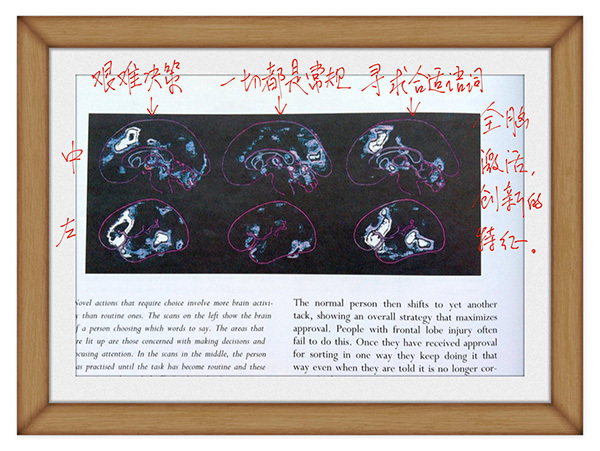 艰难决策 一切都是常规 寻求合适语词
全脑
激活,
创新的
特征。
中
左
Novel actions that require choice involve more brain activi-
y than routine ones. The scans on the left show the brain
f a person choosing which words to say. The areas that
re lit up are those concerned with making decisions and
ocusing attention. In the scans in the middle, the person
as practised until the task has become routine and these
The normal person then shifts to yet another
tack, showing an overall strategy that maximizes
approval. People with frontal lobe injury often
fail to do this. Once they have received approval
for sorting in one way they keep doing it that
way even when they are told it is no longer cor-